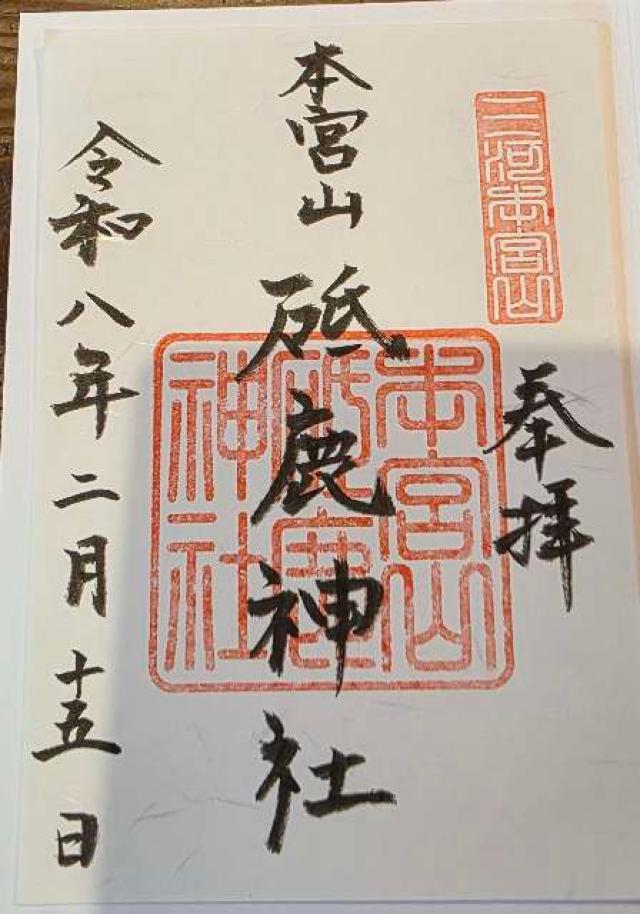 三河本宮山
奉拝
本宮山
砥鹿神社
本宮山
砥鹿
神社
令和八年二月十五日